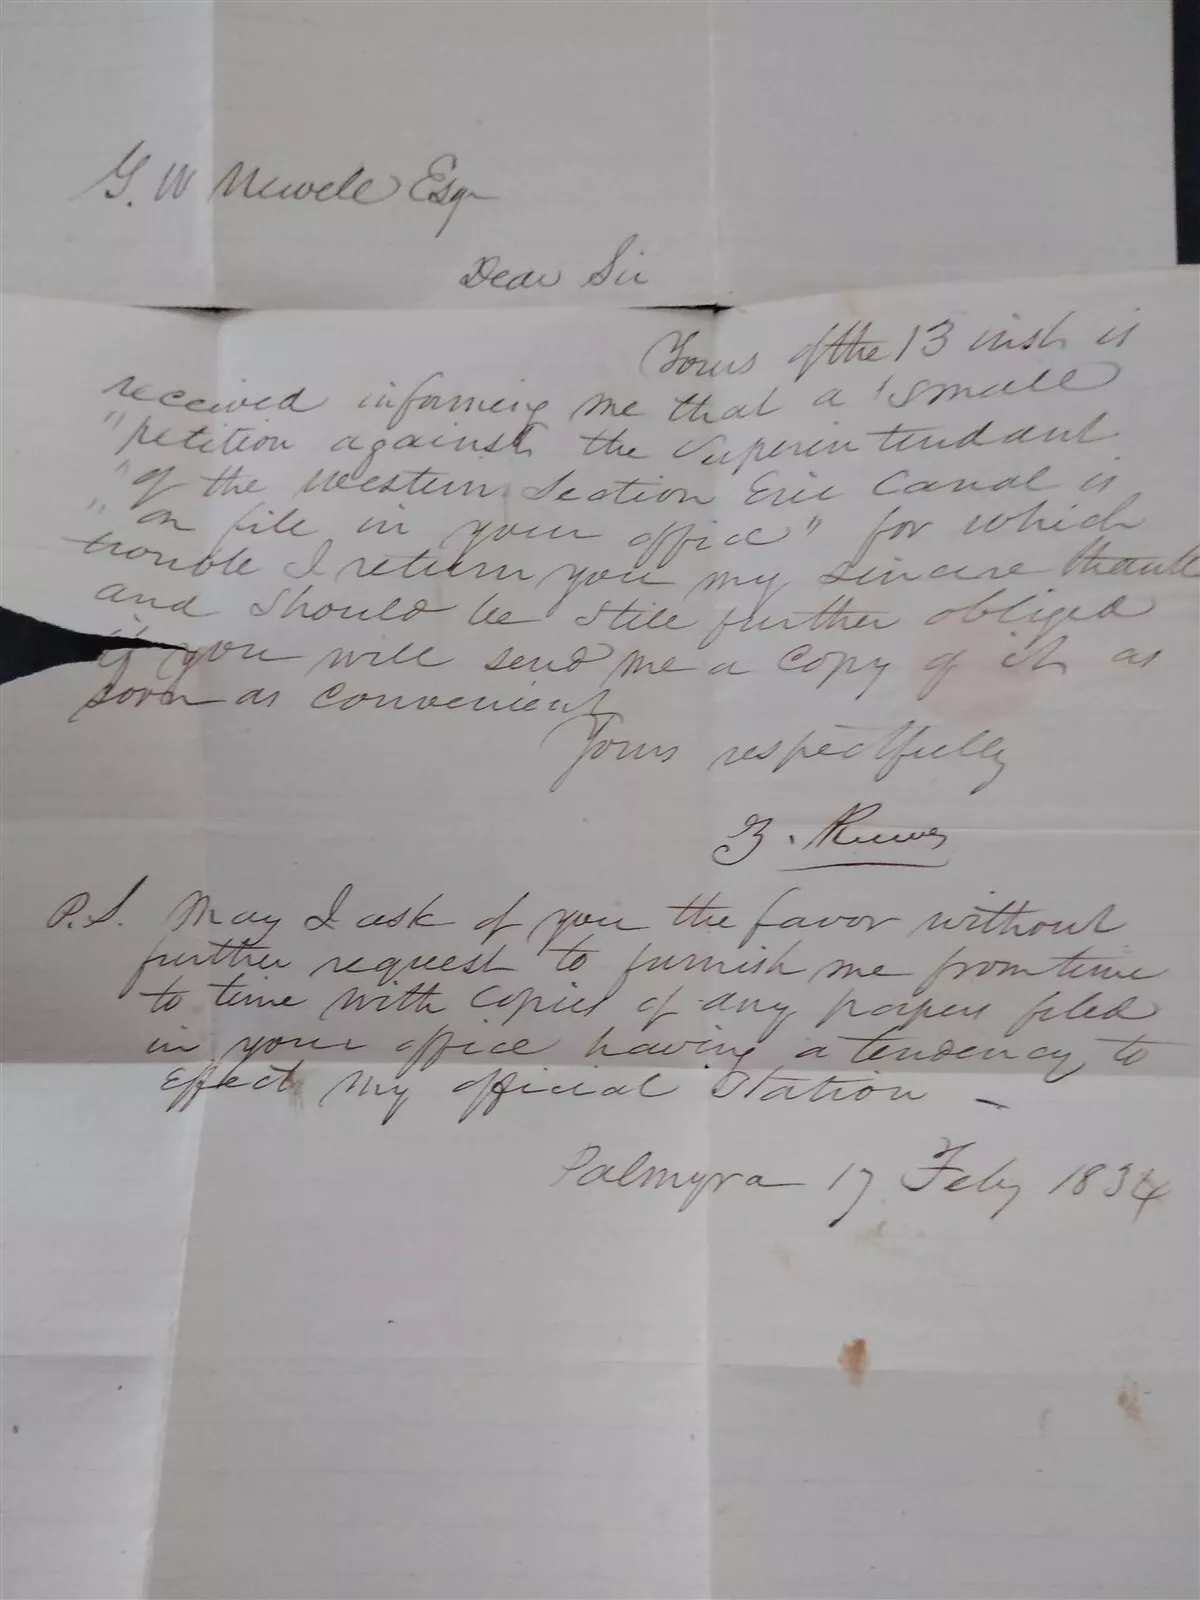 G. W Newell Esqr
Dear Sir
Yours of the 13 inst is
received informing me that a "small
"petition against the Superintendant
"of the Western Section Erie Canal is
"on file in your office" for which
trouble I return you my sincere thanks
and should be still further obliged
if you will send me a copy of it as
soon as convenient
Yours respectfully
P.S. May I ask of you the favor without
further request to furnish me from time
to time with copies of any papers filed
in your office having a tendency to
effect my official Station –
Palmyra 17 Feby 1834